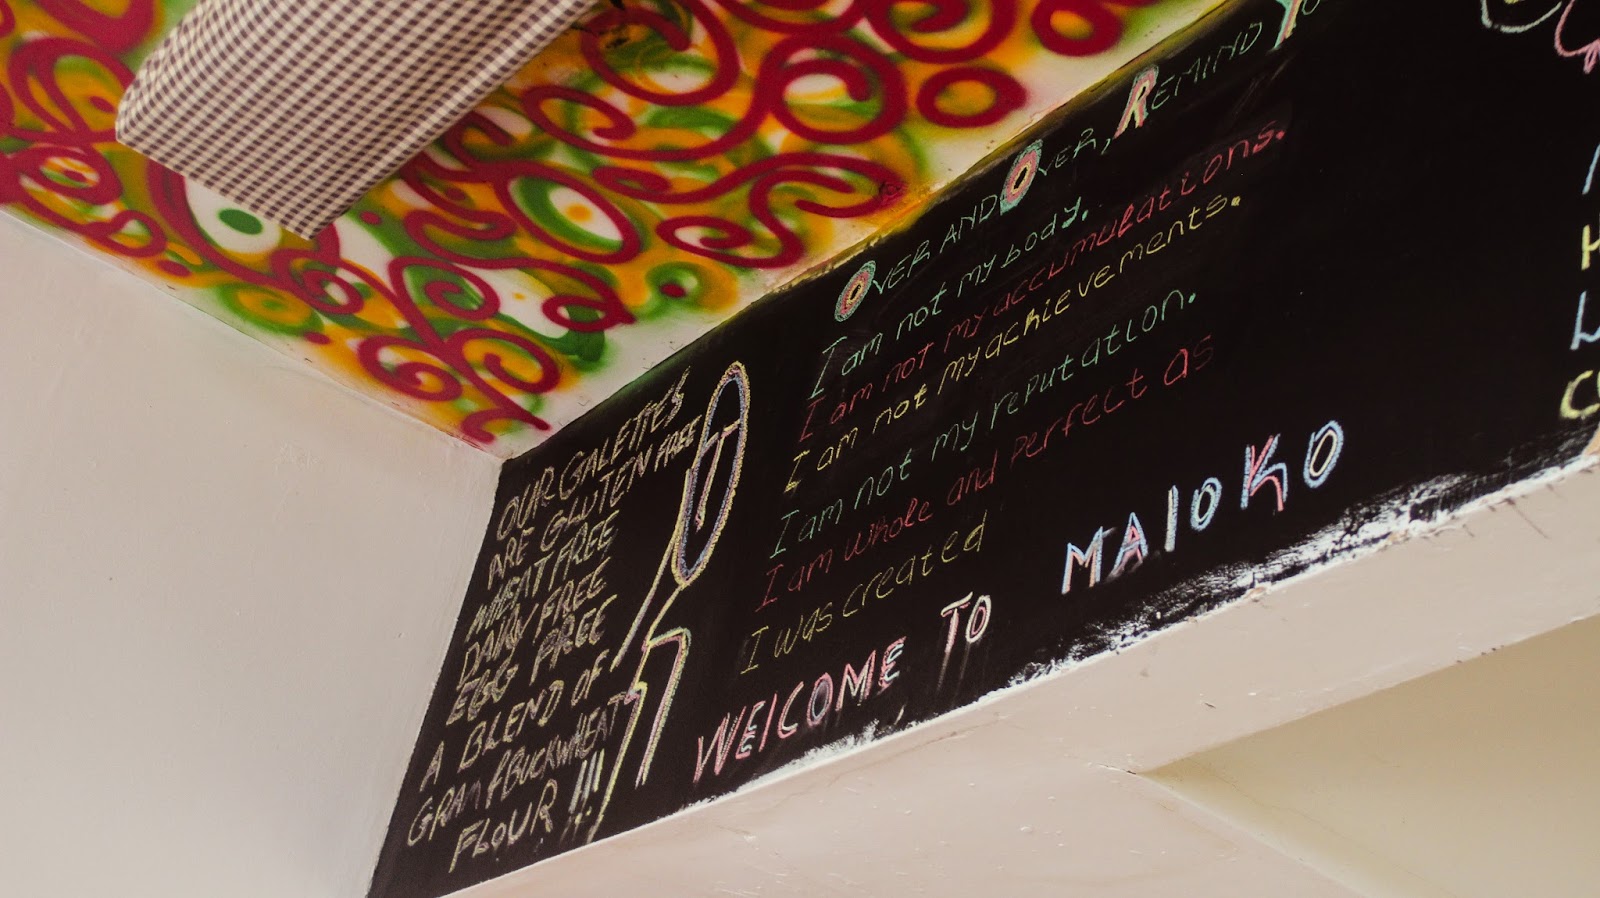 OUR GALETTES
ARE GLUTEN FREE
WHEAT FREE
DAIRY FREE
EGG FREE
A BLEND OF
GRAM & BUCKWHEAT
FLOUR !!!
OVER AND OVER, REMIND
I am not my body.
I am not my accumulations.
I am not my achievements.
I am not my reputation.
I am whole and perfect as
I was created
WELCOME TO MAIOKO